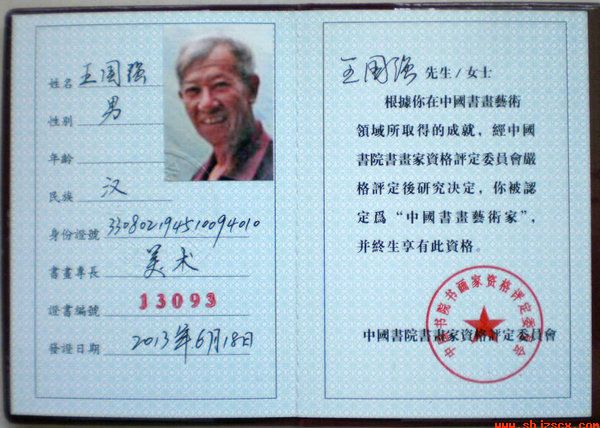 姓名 王国强
性别 男
年齡
民族 汉
身份證號 330802194510094010
書畫專長 美术
證書編號 13093
發證日期 2013年6月18日
王國强 先生/女士
根據你在中國書畫藝術
領域所取得的成就，經中國
書院書畫家資格評定委員會嚴
格評定後研究決定，你被認
定爲“中國書畫藝術家”，
并終生享有此資格。
中國書院書畫家資格評定委員會
中国书院书画家资格评定委员会
www.shjzscx.com